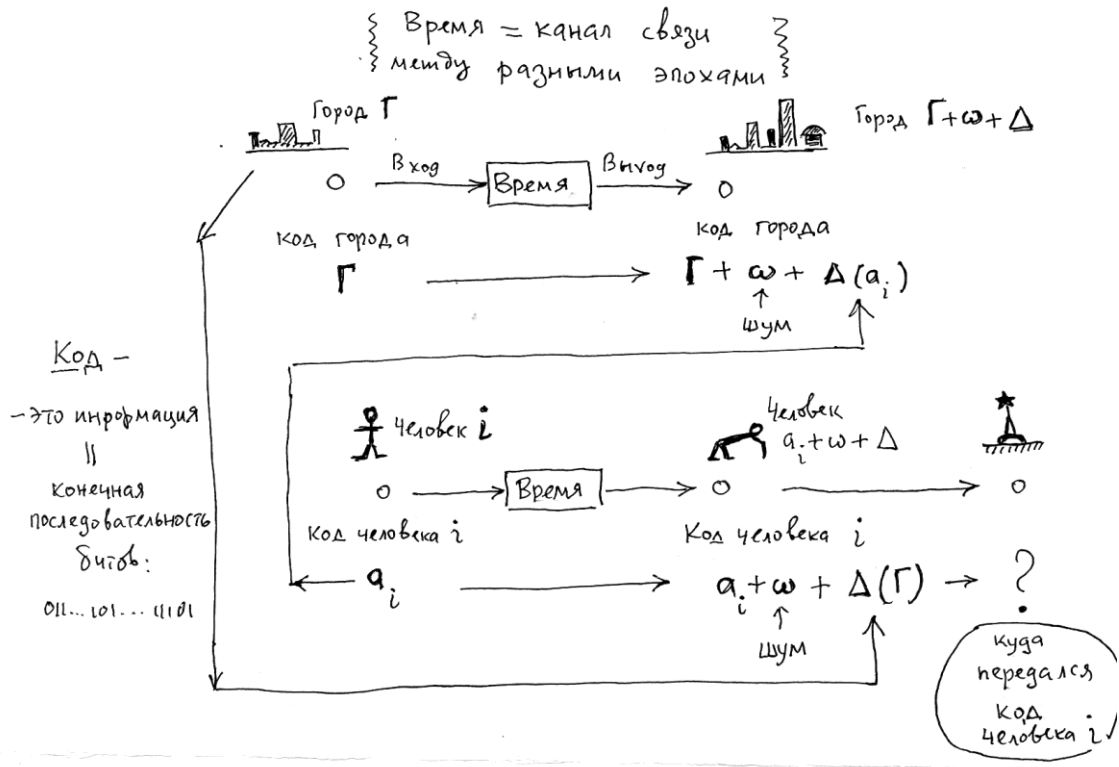 Время = канал связи
между разными эпохами
Город Г
Город Г+ω+Δ
Вход
Время
Выход
код города
код города
Г
Г + ω + Δ(a_i)
шум
Код –
– это информация
||
конечная
последовательность
битов:
011...101...11101
Человек i
Человек
a_i+ω+Δ
Время
Код человека i
Код человека i
a_i
a_i+ω + Δ(Г)
?
шум
куда
передался
код
человека i